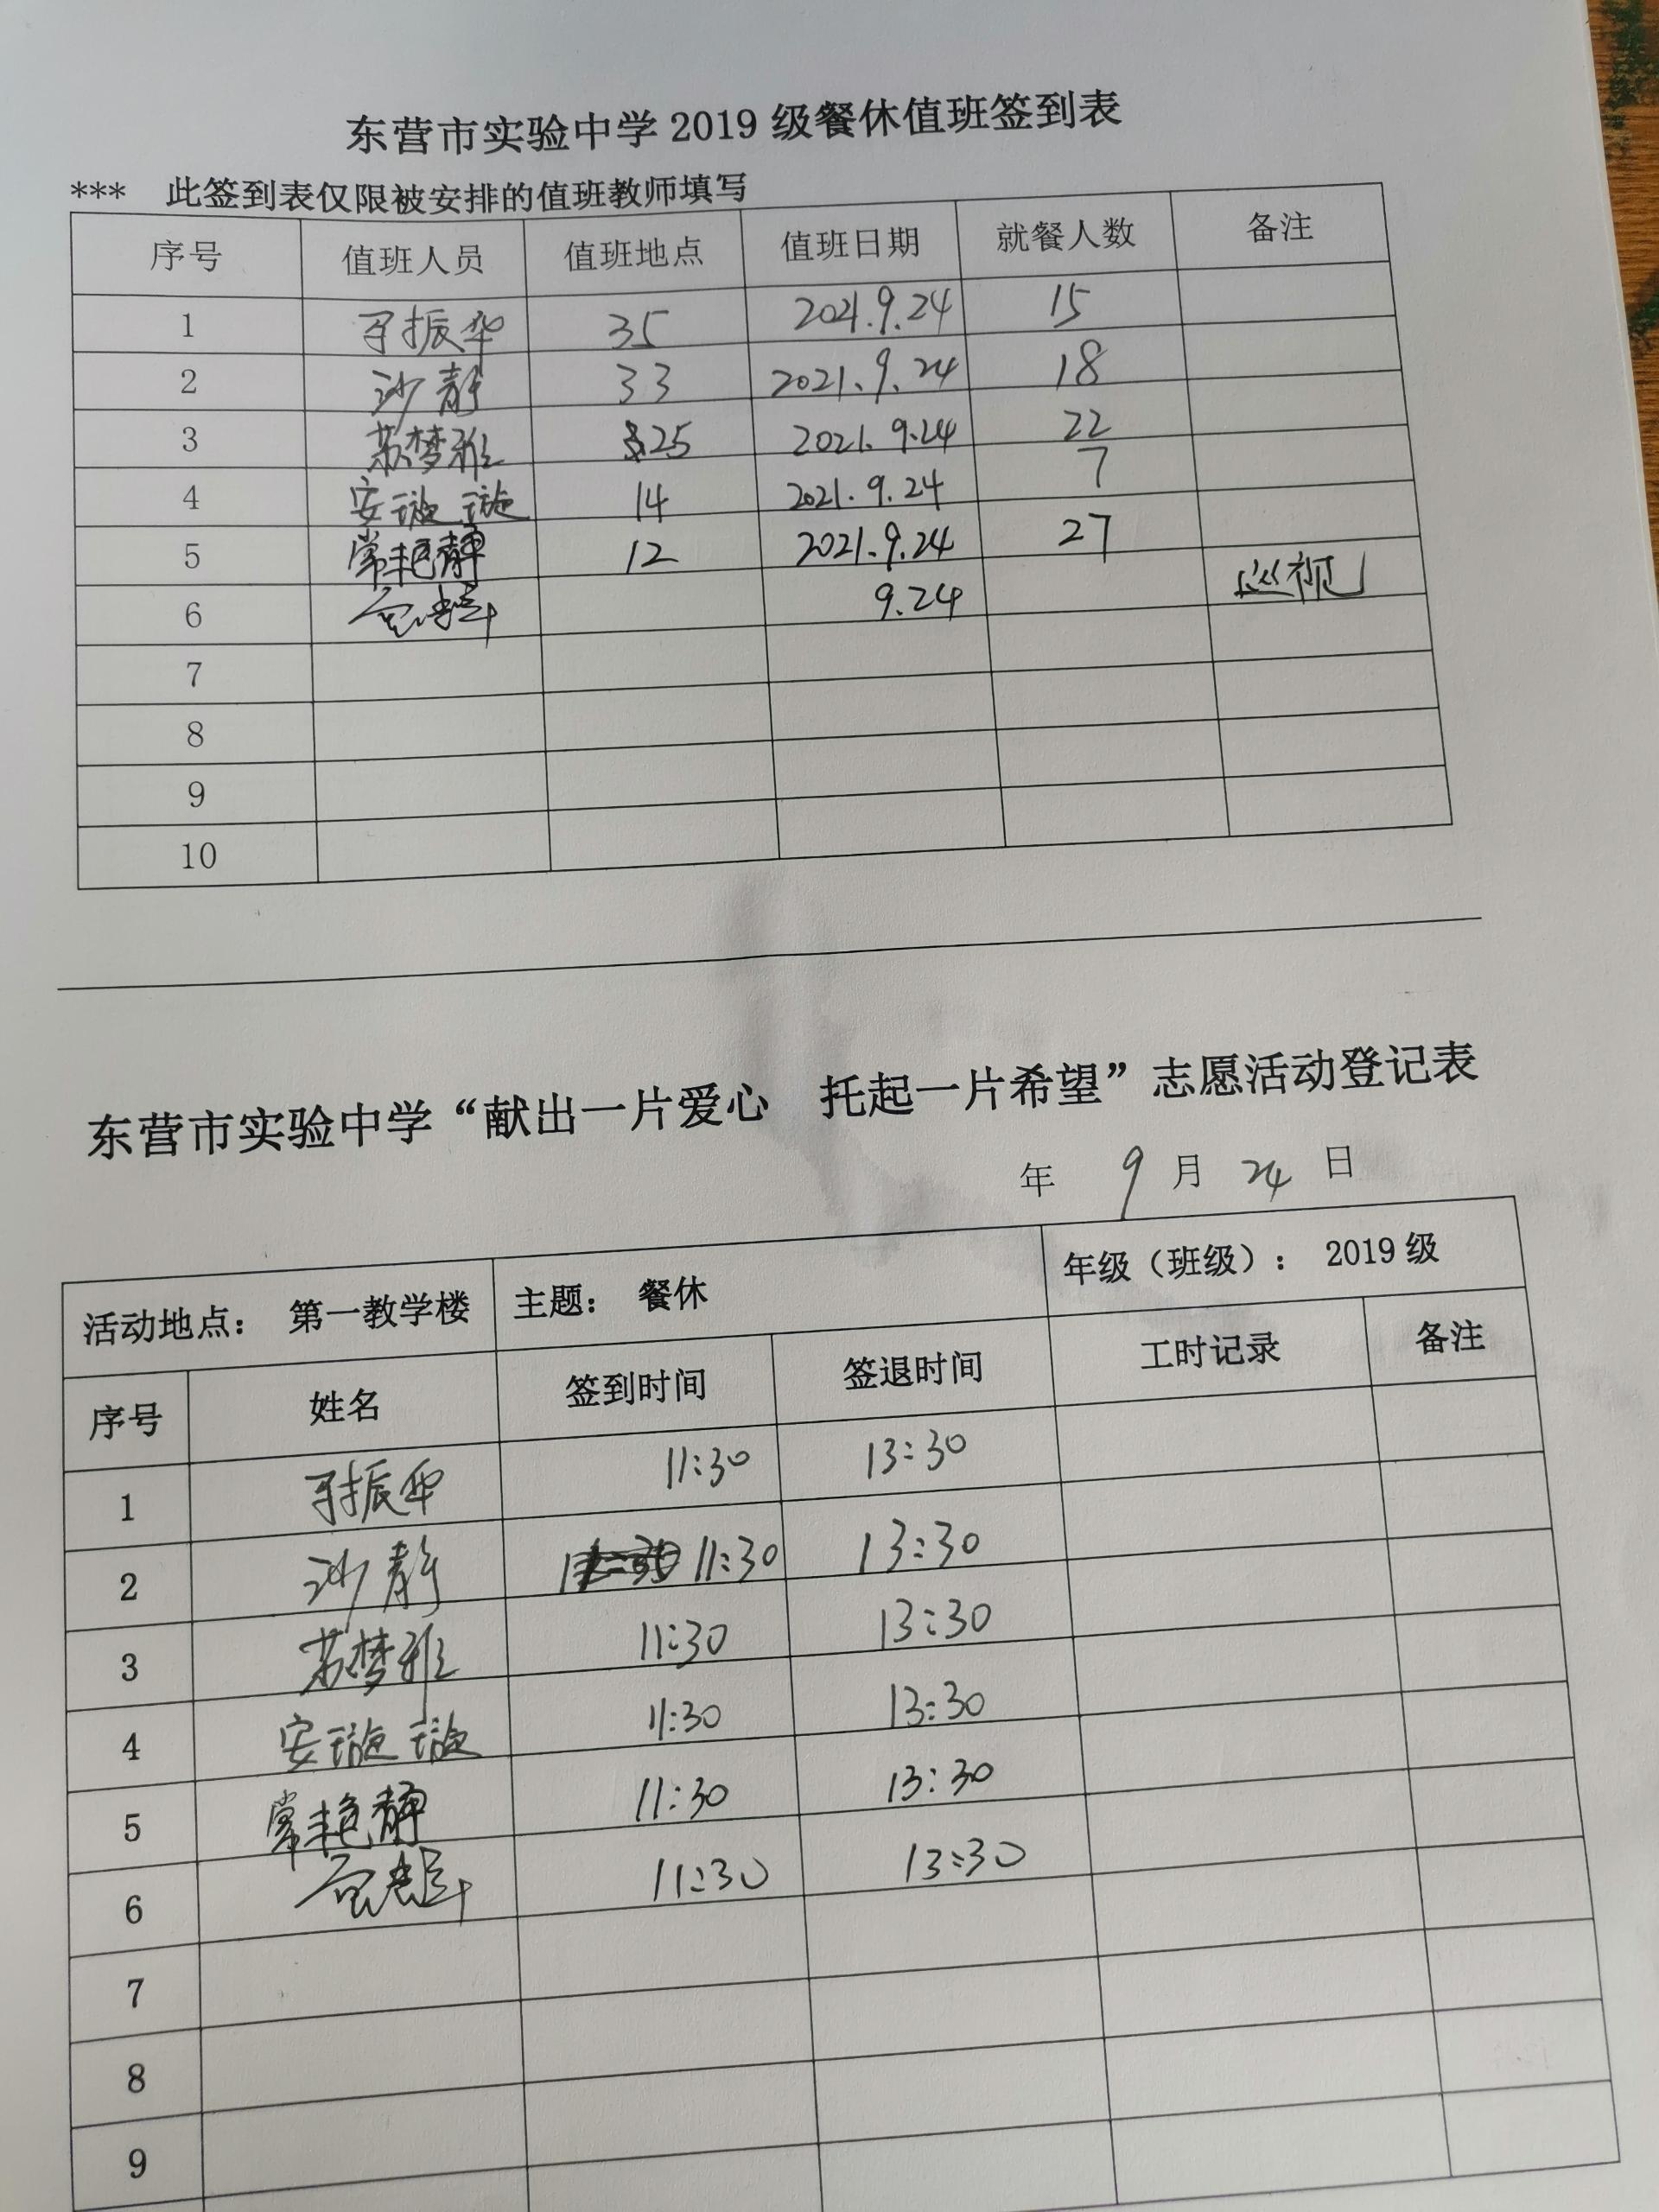 东营市实验中学2019级餐休值班签到表
*** 此签到表仅限被安排的值班教师填写
序号 值班人员 值班地点 值班日期 就餐人数 备注
1 振华 35 2021.9.24 15
2 沙静 33 2021.9.24 18
3 苏梦雅 25 2021.9.24 22
4 安璇璇 14 2021.9.24 7
5 常艳静 12 2021.9.24 27
6 9.24 巡视
7
8
9
10
东营市实验中学“献出一片爱心 托起一片希望”志愿活动登记表
年 9 月 24 日
活动地点： 第一教学楼 主题： 餐休 年级（班级）： 2019级
序号 姓名 签到时间 签退时间 工时记录 备注
1 振华 11:30 13:30
2 沙静 11:30 13:30
3 苏梦雅 11:30 13:30
4 安璇璇 11:30 13:30
5 常艳静 11:30 13:30
6 11:30 13:30
7
8
9